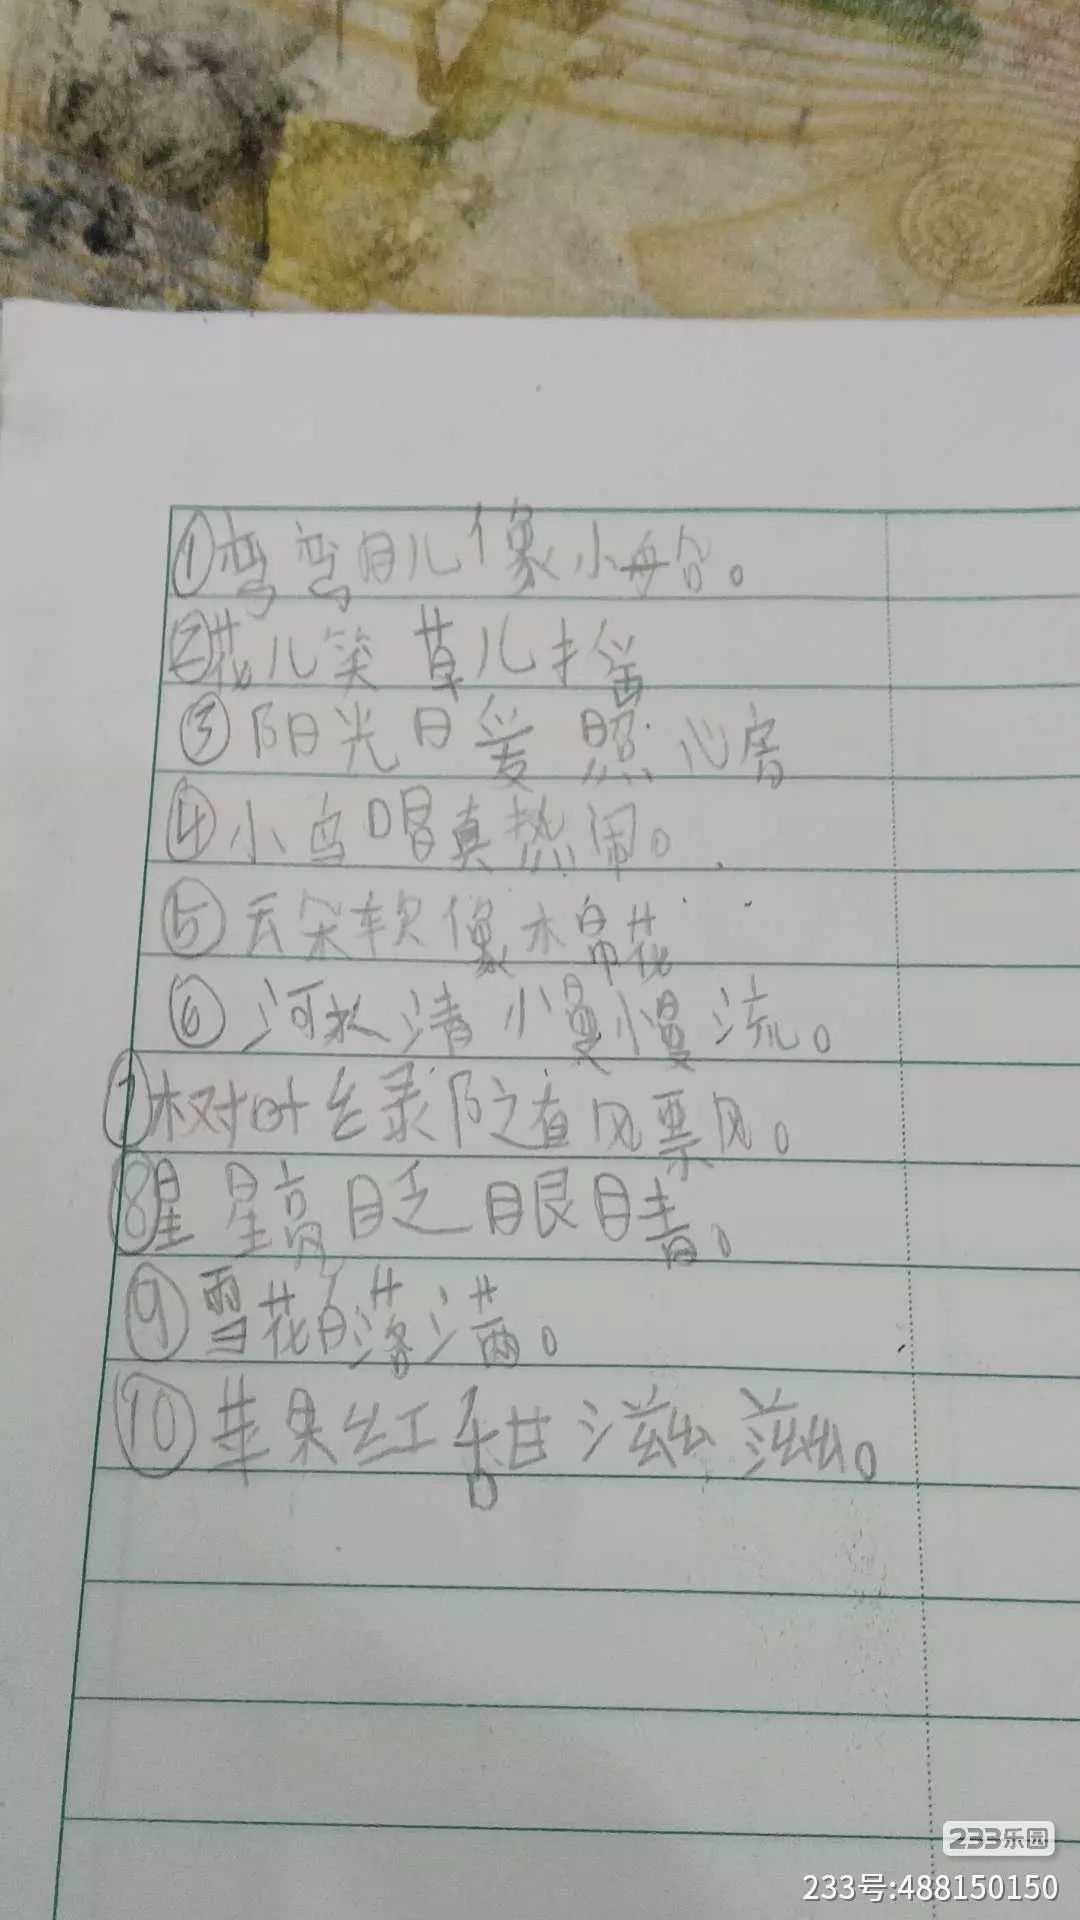 ①弯弯月儿像小船。
②花儿笑 草儿摇
③阳光日爱照心房
④小鸟唱真热闹。
⑤云朵软像棉花
⑥河水清慢慢流。
⑦树叶绿随着风飘。
⑧星星亮眨眼睛。
⑨雪花白落满。
⑩苹果红甜滋滋。
233乐园
233号:488150150